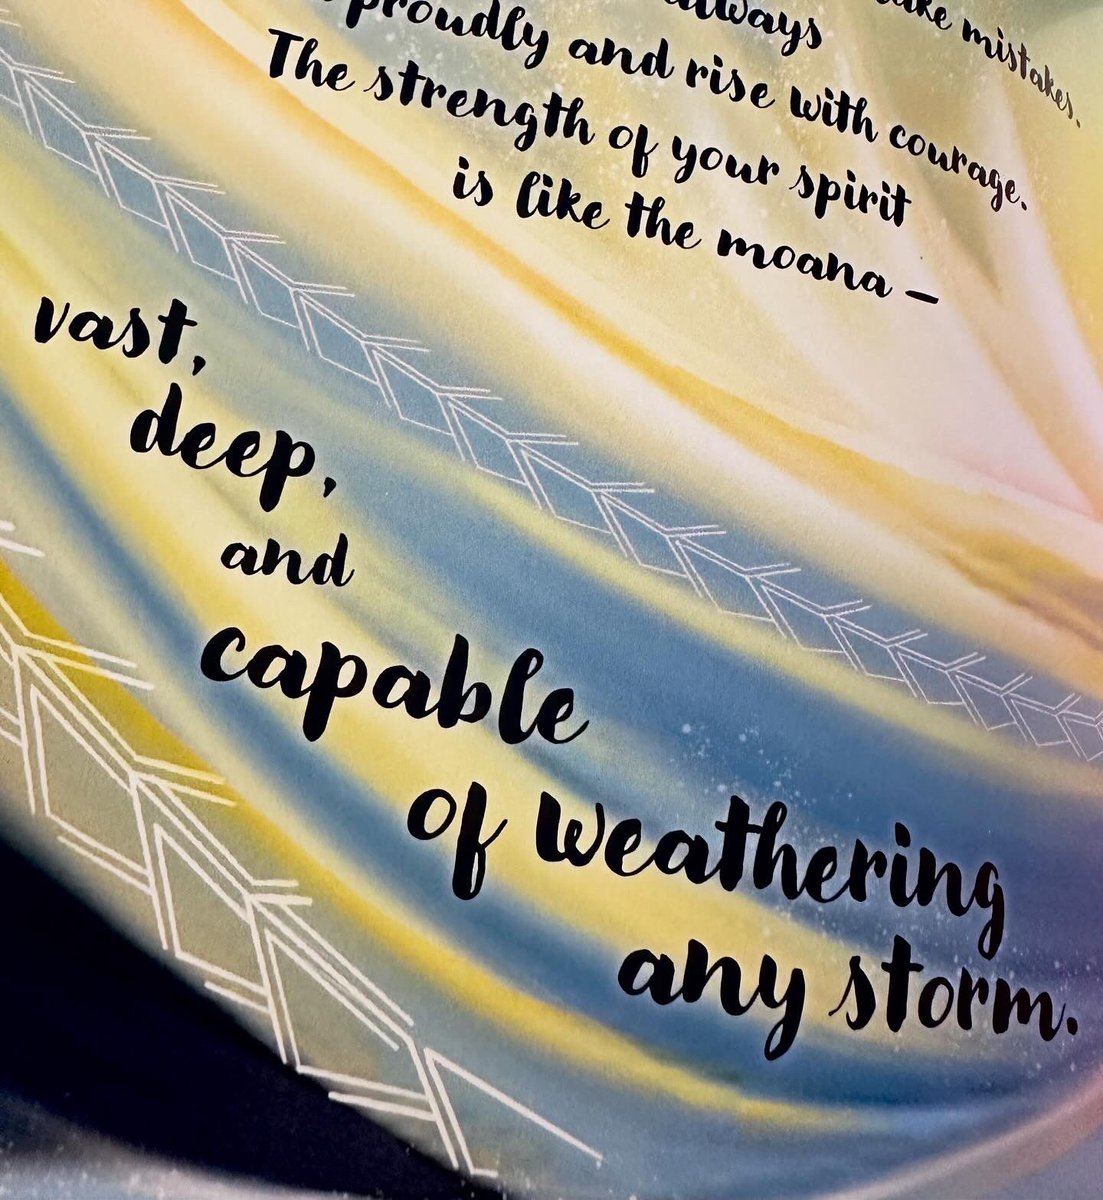 always
make mistakes.
proudly and rise with courage.
The strength of your spirit
is like the moana –
vast,
deep,
and
capable
of weathering
any storm.